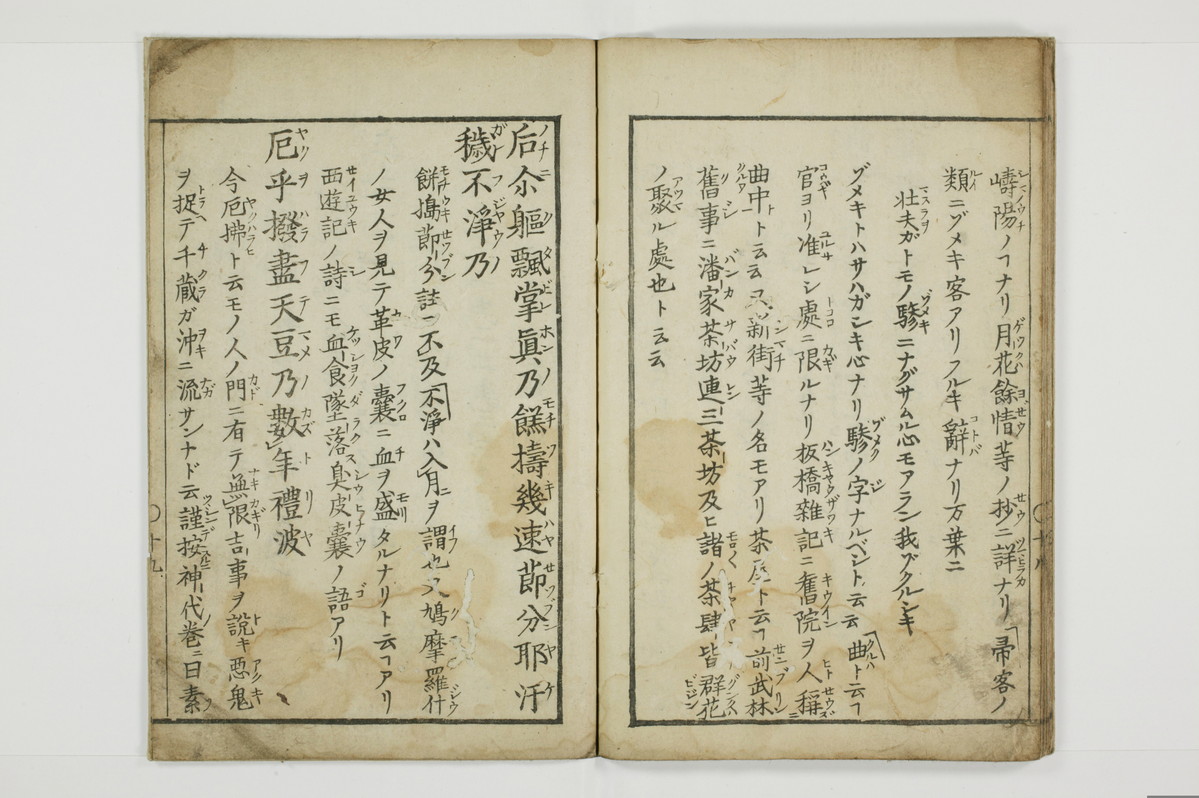 嶹陽ノヿナリ月花餘情等ノ抄ニ詳ナリ「帚客ノ
類ニゾメキ客アリフルキ辭ナリ万葉ニ
壮夫ガトモノ驂ニナグサムル心モアラン我ゾクルシキ
ゾメキトハサハガシキ心ナリ驂ノ字ナルベシト云云「曲ト云ヿ
官ヨリ准シ處ニ限ルナリ板橋雜記ニ舊院ヲ人稱
曲中ト云云又新街等ノ名モアリ茶屋ト云ヿ前武林
舊事ニ潘家茶坊連三茶坊及ヒ諸ノ茶肆皆群花
ノ聚ル處也ト云云
后尒軀飄掌眞乃餻擣幾速莭分耶汙
穢不淨乃
餅搗莭分註ニ不及「不淨ハ入月ヲ謂也又鳩摩羅什
ノ女人ヲ見テ革皮ノ囊ニ血ヲ盛タルナリト云ヿアリ
西遊記ノ詩ニモ血食墜落臭皮囊ノ語アリ
厄乎撥盡天豆乃數年禮波
今厄拂ト云モノ人ノ門ニ有テ無限吉事ヲ說キ惡鬼
ヲ捉テ千藏ガ沖ニ流サンナド云謹按神代卷ニ曰素